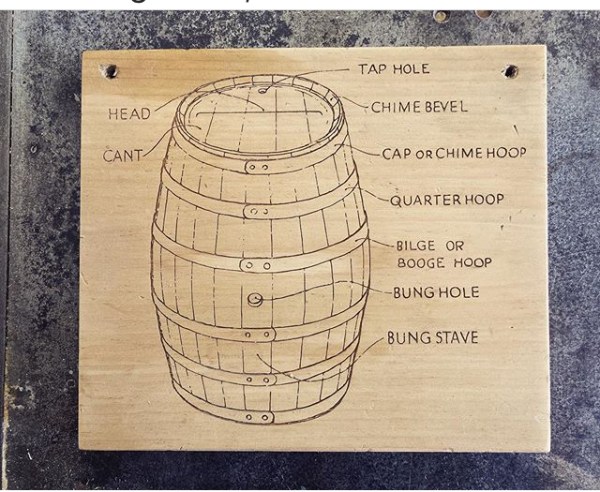 TAP HOLE
HEAD
CHIME BEVEL
CANT
CAP OR CHIME HOOP
QUARTER HOOP
BILGE OR
BOOGE HOOP
BUNG HOLE
BUNG STAVE